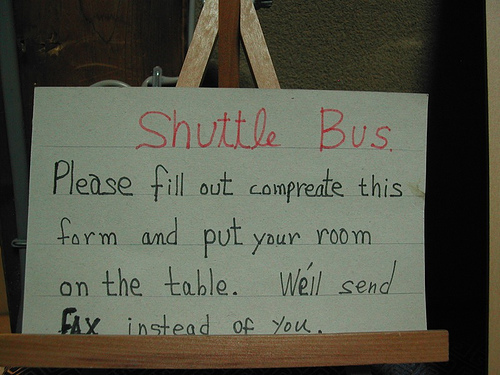 Shuttle Bus.
Please fill out compreate this
form and put your room
on the table. We'll send
FAX instead of you.